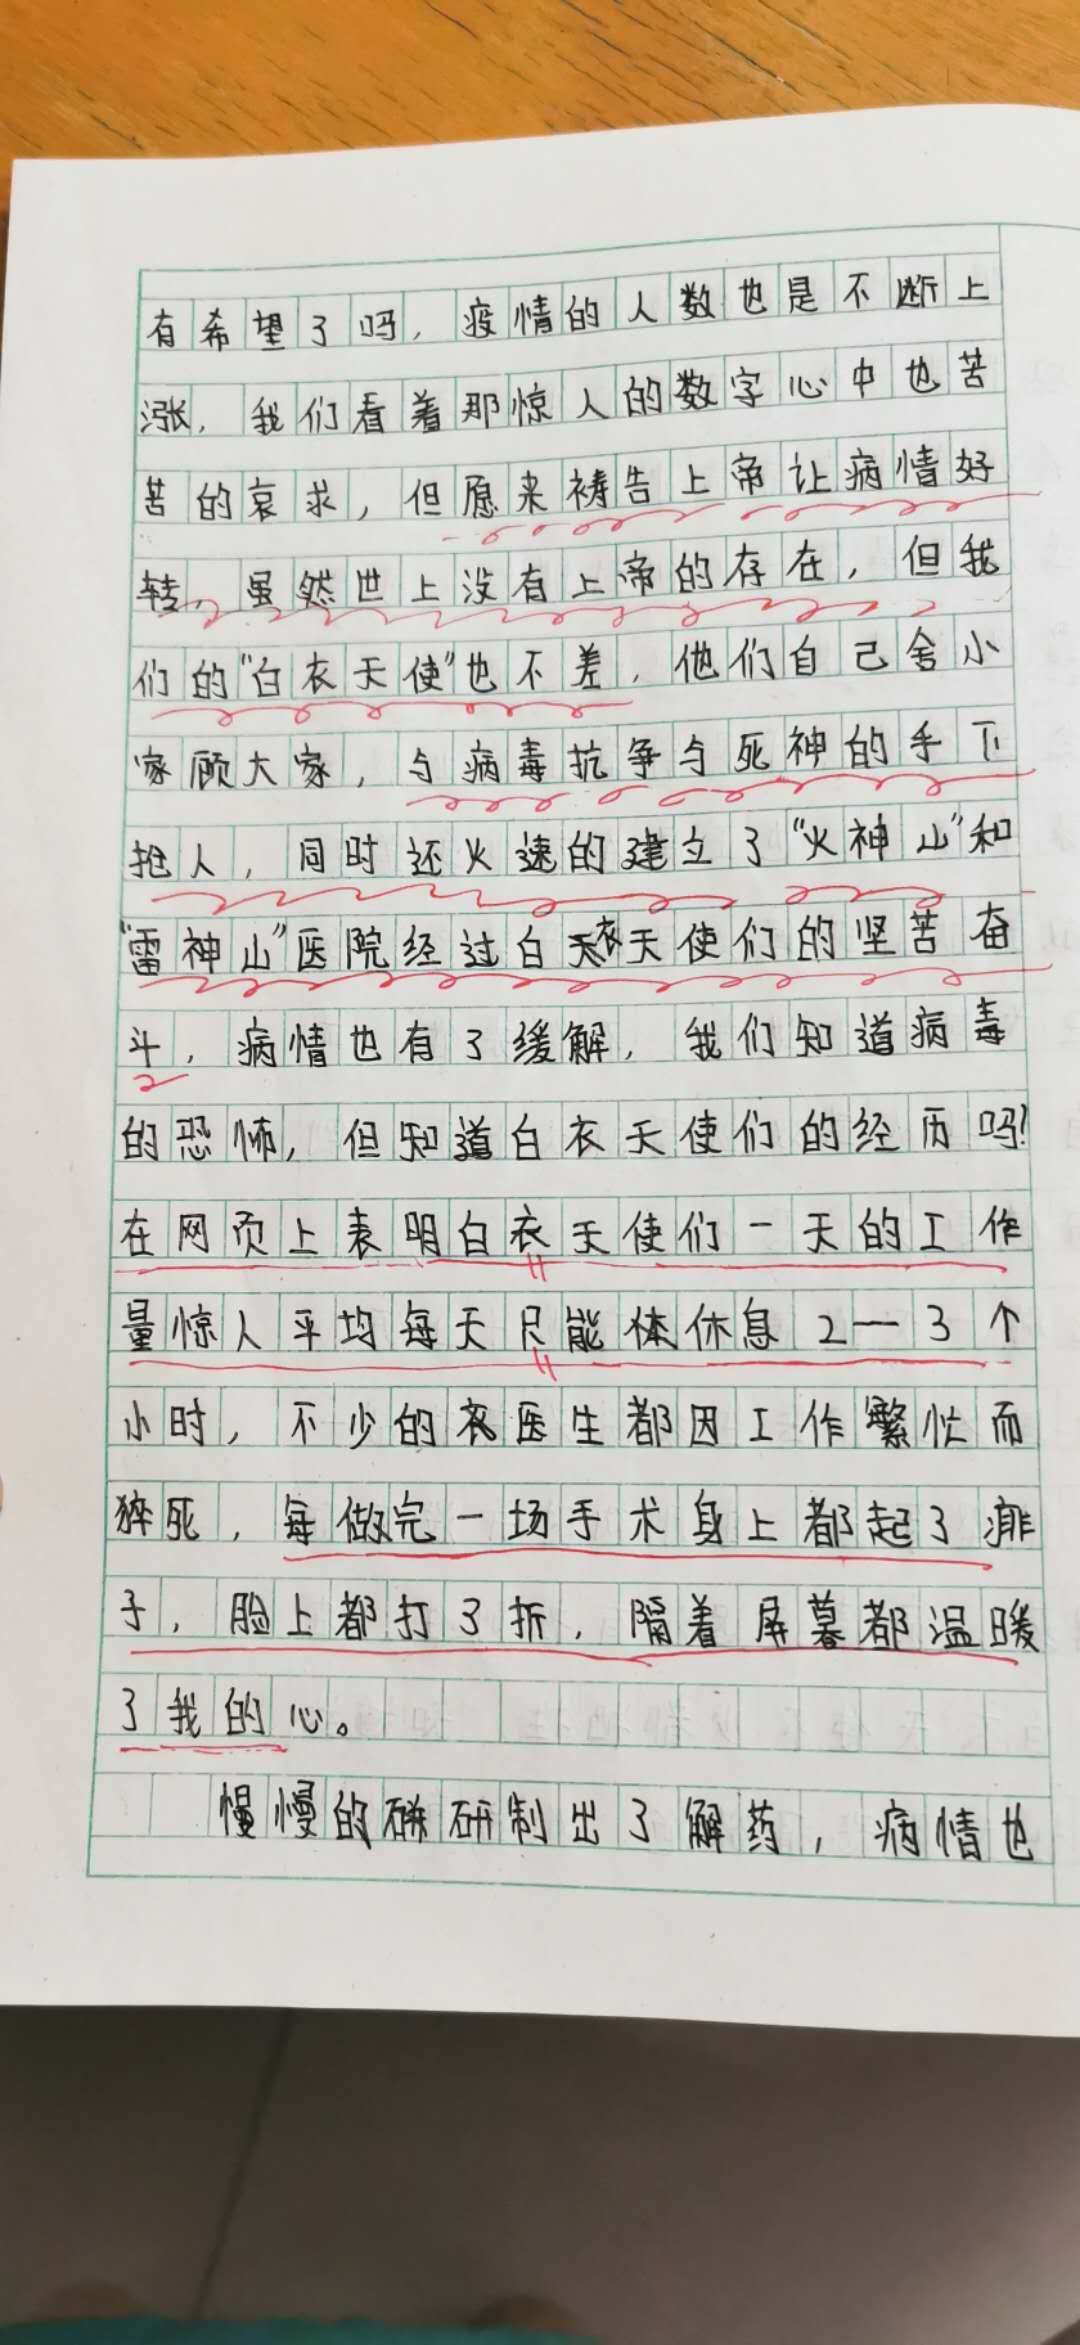 有希望了吗，疫情的人数也是不断上
涨，我们看着那惊人的数字心中也苦
苦的哀求，但愿来祷告上帝让病情好
转，虽然世上没有上帝的存在，但我
们的"白衣天使"也不差，他们自己舍小
家顾大家，与病毒抗争与死神的手下
抢人，同时还火速的建立了"火神山"和
"雷神山"医院经过白衣天使们的坚苦奋
斗，病情也有了缓解，我们知道病毒
的恐怖，但知道白衣天使们的经历吗!
在网页上表明白衣天使们一天的工作
量惊人平均每天只能休息2—3个
小时，不少的医生都因工作繁忙而
猝死，每做完一场手术身上都起了痱
子，脸上都打了折，隔着屏幕都温暖
了我的心。
慢慢的研制出了解药，病情也